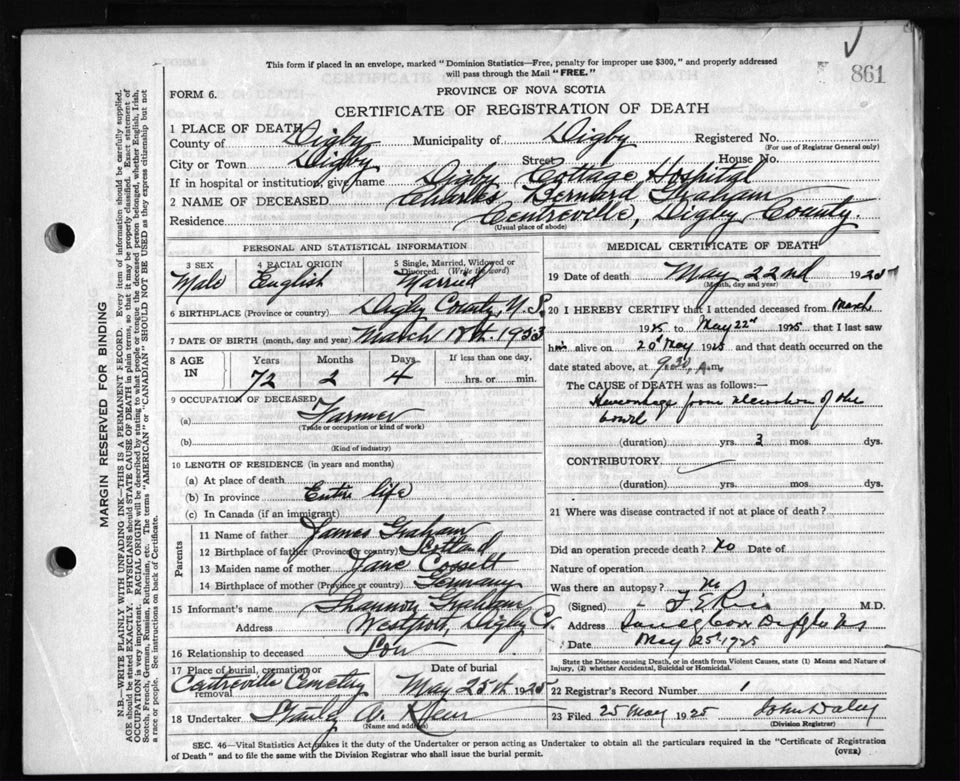 This form if placed in an envelope, marked "Dominion Statistics—Free, penalty for improper use $300," and properly addressed
will pass through the Mail "FREE."
861
FORM 6.
PROVINCE OF NOVA SCOTIA
CERTIFICATE OF REGISTRATION OF DEATH
1 PLACE OF DEATH
County of Digby Municipality of Digby Registered No.
(For use of Registrar General only)
City or Town Digby Street House No.
If in hospital or institution, give name Digby Cottage Hospital
2 NAME OF DECEASED Charles Bernard Graham
Residence Centreville, Digby County.
(Usual place of abode)
PERSONAL AND STATISTICAL INFORMATION
3 SEX 4 RACIAL ORIGIN 5 Single, Married, Widowed or
Divorced. (Write the word)
Male English Married
6 BIRTHPLACE (Province or country) Digby County, N.S.
7 DATE OF BIRTH (month, day and year) March 18th. 1953
8 AGE IN Years Months Days If less than one day,
72 2 4 hrs. or min.
9 OCCUPATION OF DECEASED
(a) Farmer
(Trade or occupation or kind of work)
(b)
(Kind of industry)
10 LENGTH OF RESIDENCE (in years and months)
(a) At place of death
(b) In province Entire life
(c) In Canada (if an immigrant)
Parents
11 Name of father James Graham
12 Birthplace of father (Province or country) Scotland
13 Maiden name of mother Jane Cossett
14 Birthplace of mother (Province or country) Germany
15 Informant's name Shannon Graham
Address Westport, Digby Co.
16 Relationship to deceased Son
17 Place of burial, cremation or removal Date of burial
Centreville Cemetery May 25th 1925
18 Undertaker Stanley
(Name and address)
MEDICAL CERTIFICATE OF DEATH
19 Date of death May 22nd 1925
(Month, day and year)
20 I HEREBY CERTIFY that I attended deceased from March
1925 to May 22nd 1925 that I last saw
him alive on 20th May 1925 and that death occurred on
date stated above, at 9.30, A.m.
The CAUSE of DEATH was as follows:—
Hemorrhage from ulceration of the
bowel
(duration) yrs. 3 mos. dys.
CONTRIBUTORY
(duration) yrs. mos. dys.
21 Where was disease contracted if not at place of death?
Did an operation precede death? No Date of
Nature of operation
Was there an autopsy? no
(Signed) M.D.
Address
Date May 25th 1925
State the Disease causing Death, or in death from Violent Causes, state (1) Means and Nature of
Injury, (2) whether Accidental, Suicidal or Homicidal.
22 Registrar's Record Number 1
23 Filed 25 May 1925 John Daley
(Division Registrar)
SEC. 46—Vital Statistics Act makes it the duty of the Undertaker or person acting as Undertaker to obtain all the particulars required in the "Certificate of Registration
of Death" and to file the same with the Division Registrar who shall issue the burial permit. (OVER)
MARGIN RESERVED FOR BINDING
N.B.—WRITE PLAINLY WITH UNFADING INK—THIS IS A PERMANENT RECORD. Every item of information should be carefully supplied.
AGE should be stated EXACTLY. PHYSICIANS should STATE CAUSE OF DEATH in plain terms, so that it may be properly classified. Exact statement of
OCCUPATION is very important. RACIAL ORIGIN will be described by stating to what people or tongue the deceased person belonged, whether English, Irish,
Scotch, French, German, Russian, Ruthenian, etc. The terms "AMERICAN" or "CANADIAN" SHOULD NOT BE USED as they express citizenship but not
a race or people. See instructions on back of Certificate.